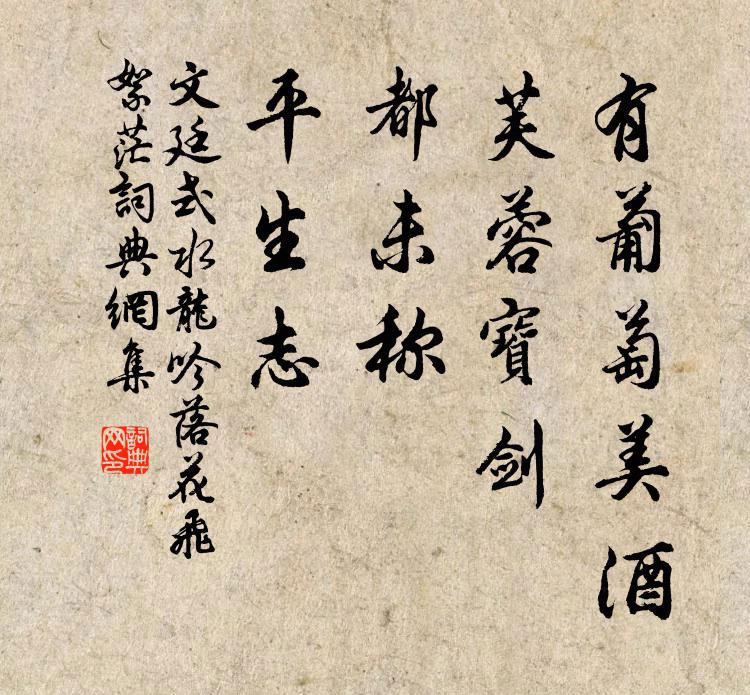 有葡萄美酒
芙蓉寶剑
都未称
平生志
文廷式水龍吟落花飛
絮茫詞典網集
詞典网印